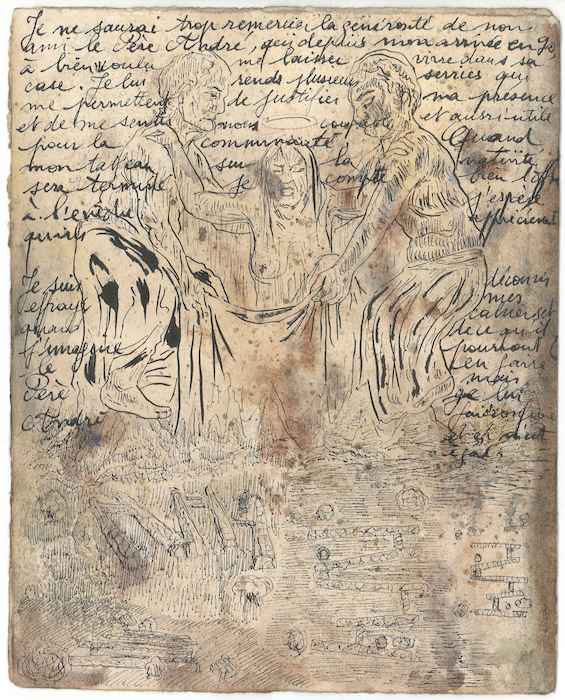 Je ne saurai trop remercier la générosité de mon
ami le Père André, qui depuis mon arrivée en
à bien voulu me laisser vivre dans sa
case. Je lui rends plusieurs services qui
me permettent de justifier ma présence
et de me sentir moins coupable et aussi utile
pour la communauté. Quand
mon tableau sur la nativité
sera terminé je compte bien l'offrir
à l'évêché j'espère
qu'ils apprécieront
Je suis découvre
effrayé mes
quand cahiers et
j'imagine de ce qu'il
le pourrait
Père en faire
André mais
je lui
et est
égal.